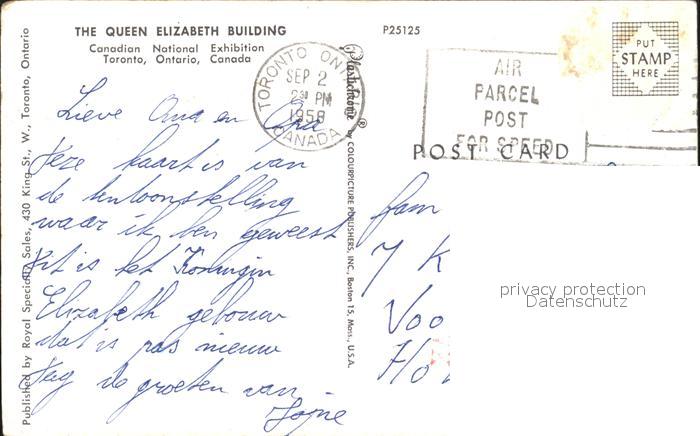 THE QUEEN ELIZABETH BUILDING
Canadian National Exhibition
Toronto, Ontario, Canada
P25125
TORONTO ONT
SEP 2
PM
1958
CANADA
AIR
PARCEL
POST
FOR SPEED
PUT
STAMP
HERE
POST CARD
Lieve Oma en Opa
Deze kaart is van
de tentoonstelling
waar ik ben geweest
Dit is het Koningin
Elizabeth gebouw
dat is pas nieuw
Dag de groeten van
fam
7 K
Voo
Ho
Published by Royal Specialty Sales, 430 King St., W., Toronto, Ontario
Plastichrome ® by COLOURPICTURE PUBLISHERS, INC., Boston 15, Mass., U.S.A.
privacy protection
Datenschutz